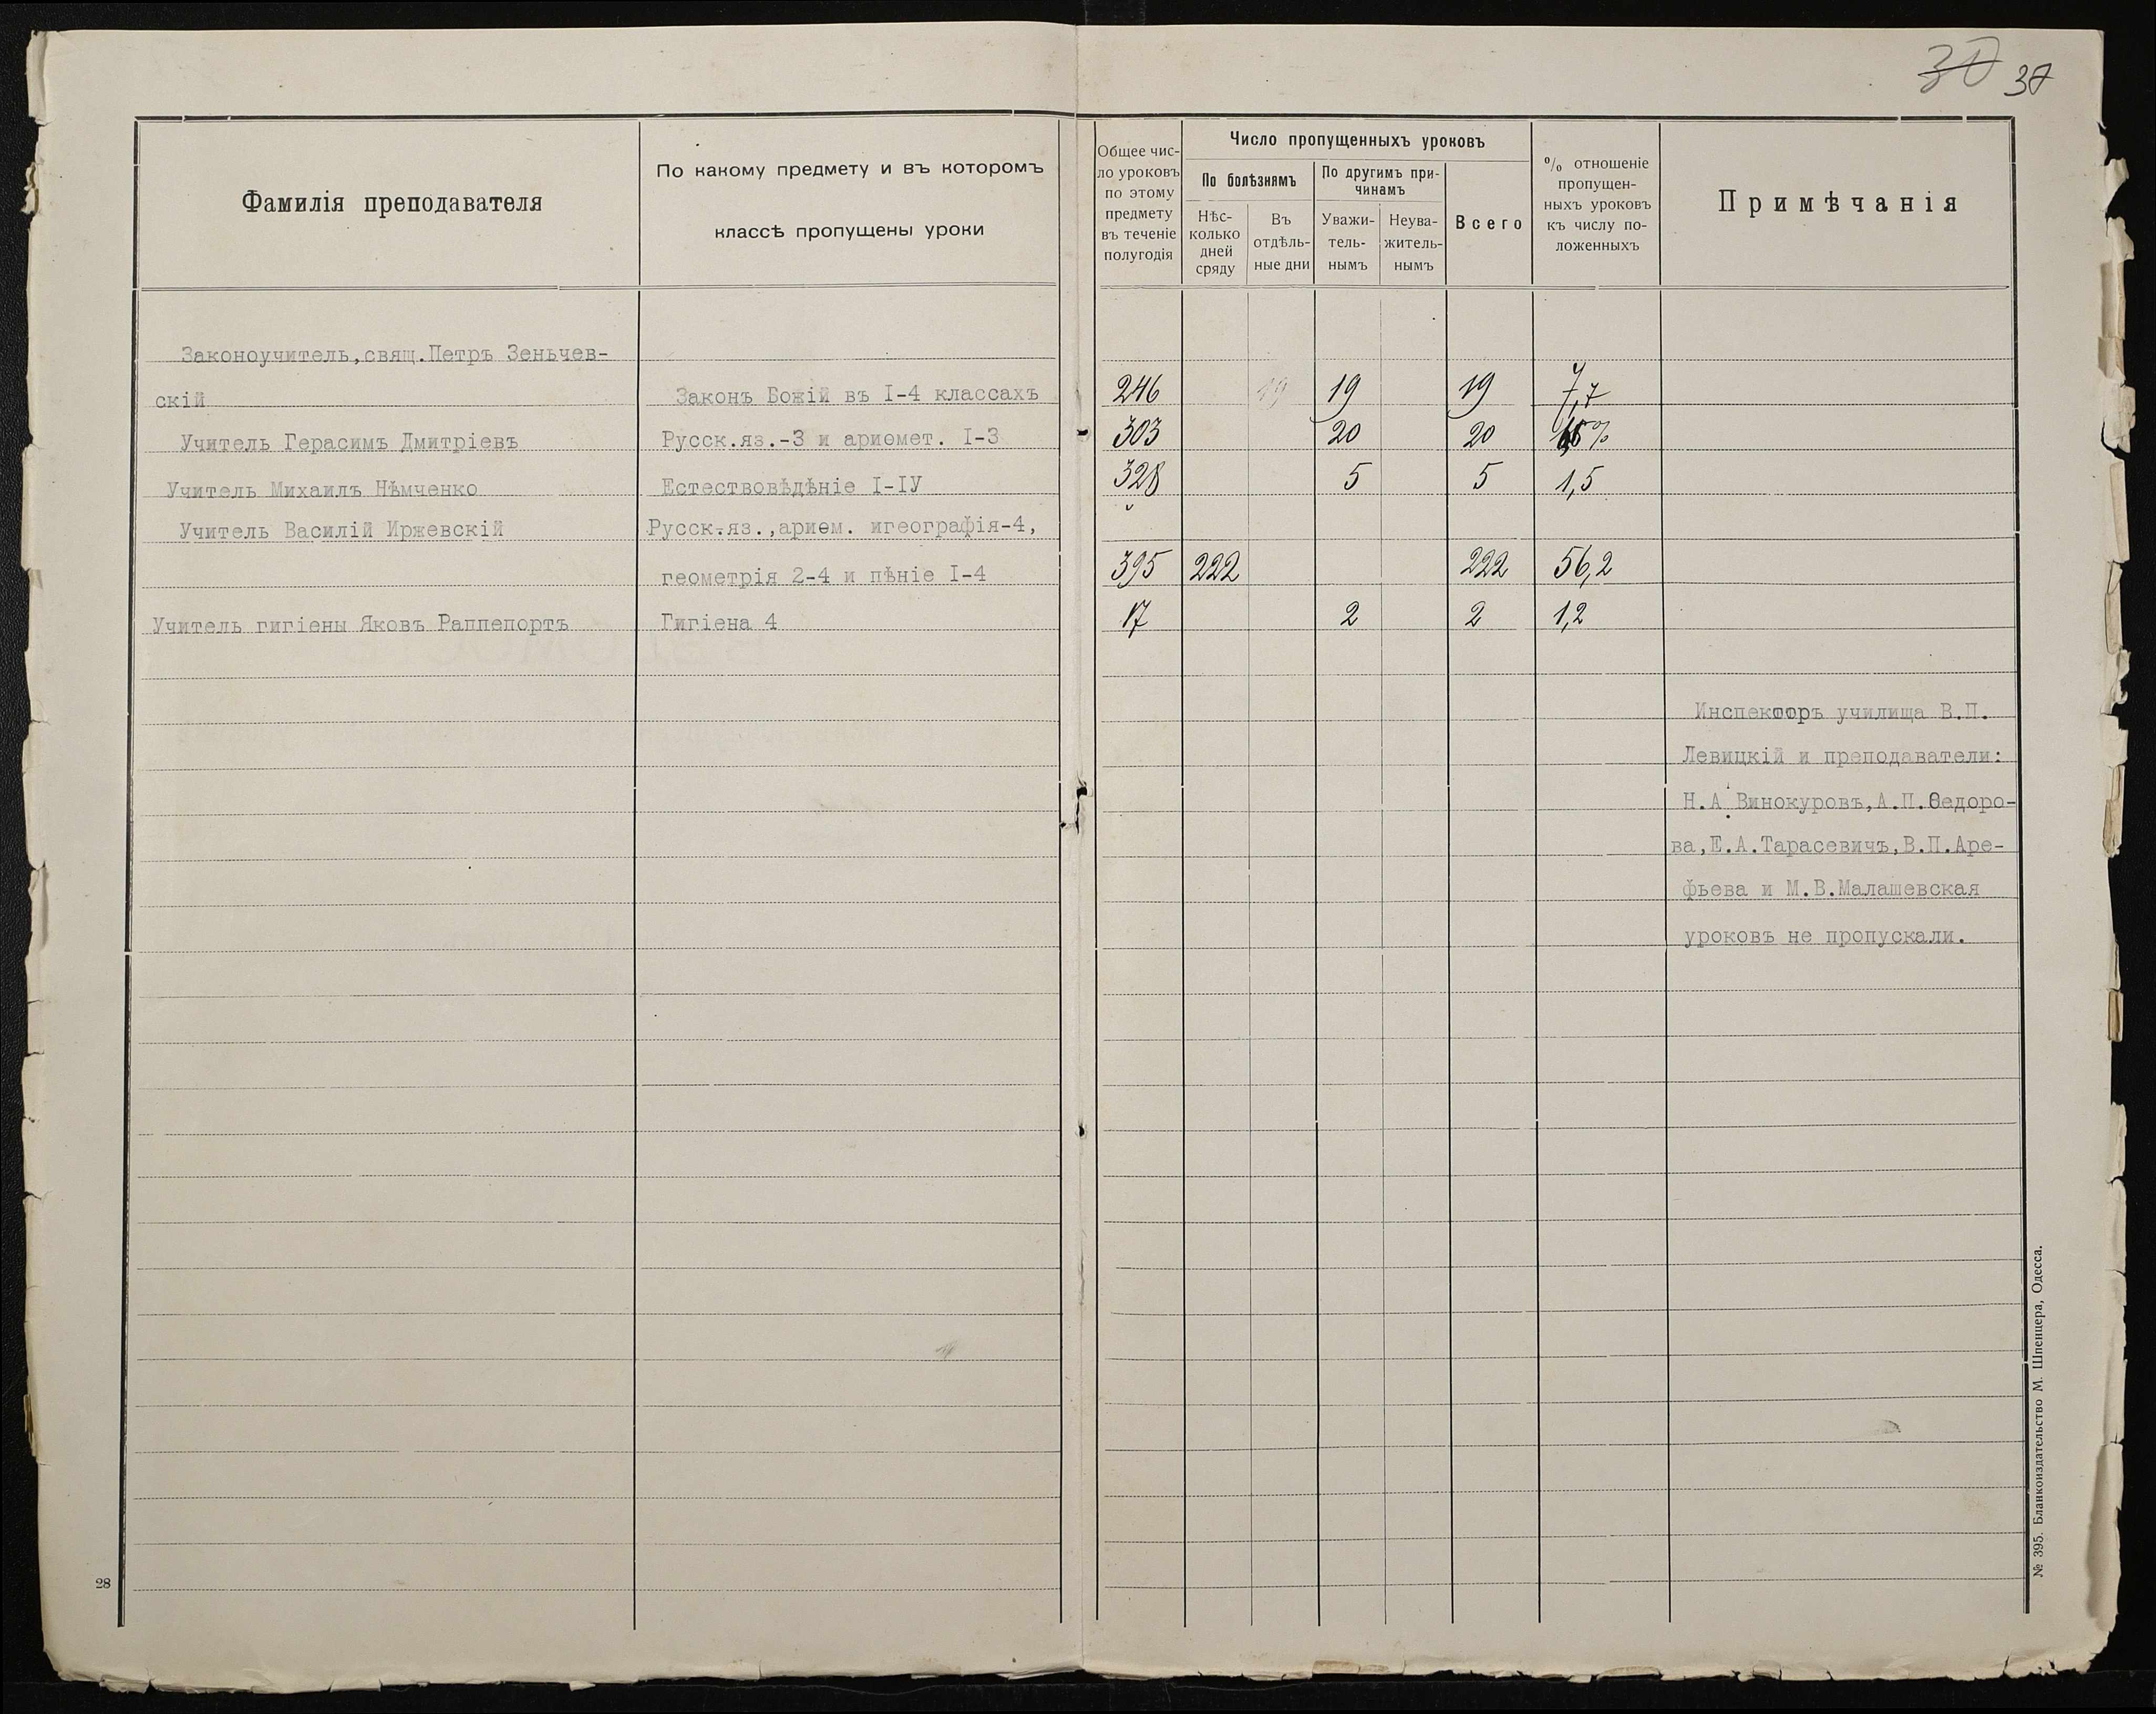 37
Фамилія преподавателя
По какому предмету и въ которомъ
классѣ пропущены уроки
Общее чис-
ло уроковъ
по этому
предмету
въ теченіе
полугодія
Число пропущенныхъ уроковъ
По болѣзнямъ
По другимъ при-
чинамъ
Нѣс-
колько
дней
сряду
Въ
отдѣль-
ные дни
Уважи-
тель-
нымъ
Неува-
житель-
нымъ
Всего
% отношеніе
пропущен-
ныхъ уроковъ
къ числу по-
ложенныхъ
Примѣчанія
Законоучитель,свящ.Петръ Зеньчев-
скій Законъ Божій въ I-4 классахъ 246 19 19 7,7
Учитель Герасимъ Дмитріевъ Русск.яз.-3 и ариѳмет. I-3 303 20 20 %
Учитель Михаилъ Нѣмченко Естествовѣдѣніе I-IУ 328 5 5 1,5
Учитель Василій Иржевскій Русск.яз.,ариѳм. игеографія-4,
геометрія 2-4 и пѣніе I-4 395 222 222 56,2
Учитель гигіены Яковъ Раппепортъ Гигіена 4 17 2 2 1,2
Инспекторъ училища В.П.
Левицкій и преподаватели:
Н.А.Винокуровъ,А.П.Ѳедоро-
ва,Е.А.Тарасевичъ,В.П.Аре-
фьева и М.В.Малашевская
уроковъ не пропускали.
28
№ 395. Бланкоиздательство М. Шпенцера, Одесса.